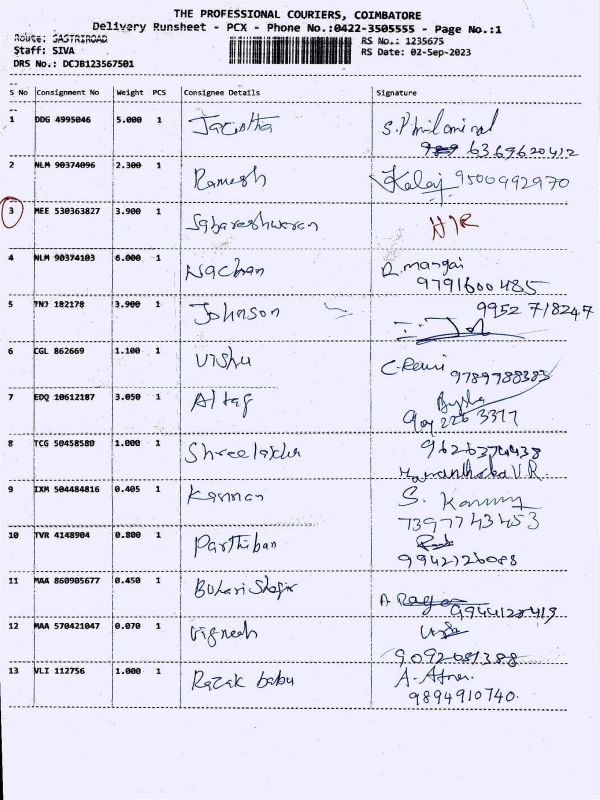 THE PROFESSIONAL COURIERS, COIMBATORE
Delivery Runsheet - PCX - Phone No.:0422-3505555 - Page No.:1
Route: SASTRIROAD RS No.: 1235675
Staff: SIVA RS Date: 02-Sep-2023
DRS No.: DCJB123567501
S No Consignment No Weight PCS Consignee Details Signature
1 DDG 4995046 5.000 1
6369620412
2 NLM 90374096 2.300 1 Ramesh Kalaj 9500992970
3 MEE 530363827 3.900 1 Sabareshwaran
4 NLM 90374103 6.000 1 Nachan R. mangai
9791600485
5 TNJ 182178 3.900 1 Johnson 9952 718247
6 CGL 862669 1.100 1 Vishu
9789788383
7 EDQ 10612187 3.050 1 Altaf
8 TCG 50458580 1.000 1 9626374438
V.R.
9 IXM 504484816 0.405 1 Kannan S.
7397743453
10 TVR 4148904 0.800 1 Parthiban
9942126088
11 MAA 860905677 0.450 1 Buhari
9944128419
12 MAA 570421047 0.070 1 Vignesh
9092681388
13 VLI 112756 1.000 1 Razak babu
9894910740.